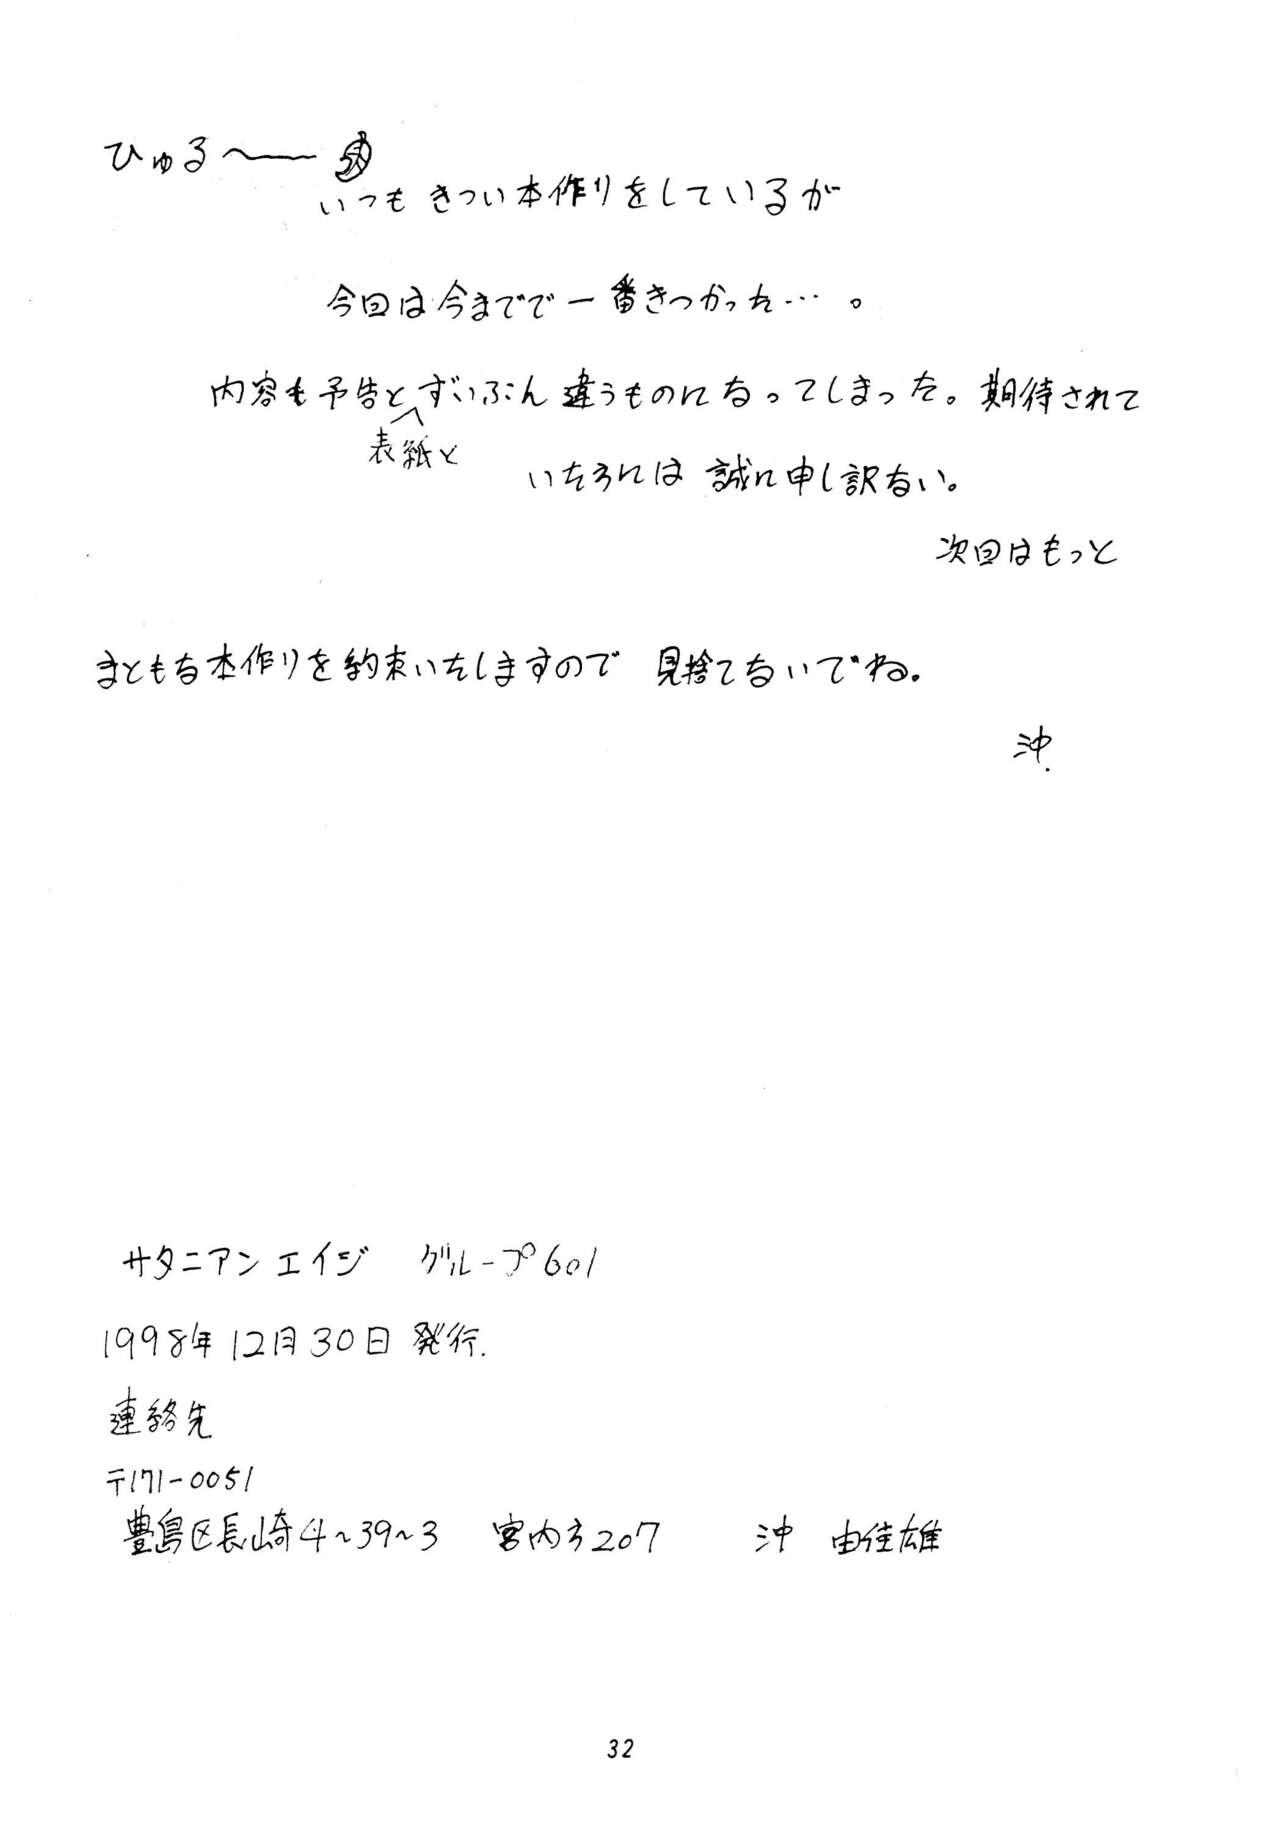 ひゅる〜
いつもきつい本作りをしているが
今回は今までで一番きつかった…。
内容も予告とずいぶん違うものになってしまった。期待されて
表紙と
いた方には 誠に申し訳ない。
次回はもっと
まともな本作りを約束いたしますので 見捨てないでね。
沖.
サタニアンエイジ グループ601
1998年12月30日発行.
連絡先
〒171-0051
豊島区長崎4~39~3 宮内方207 沖 由佳雄
32